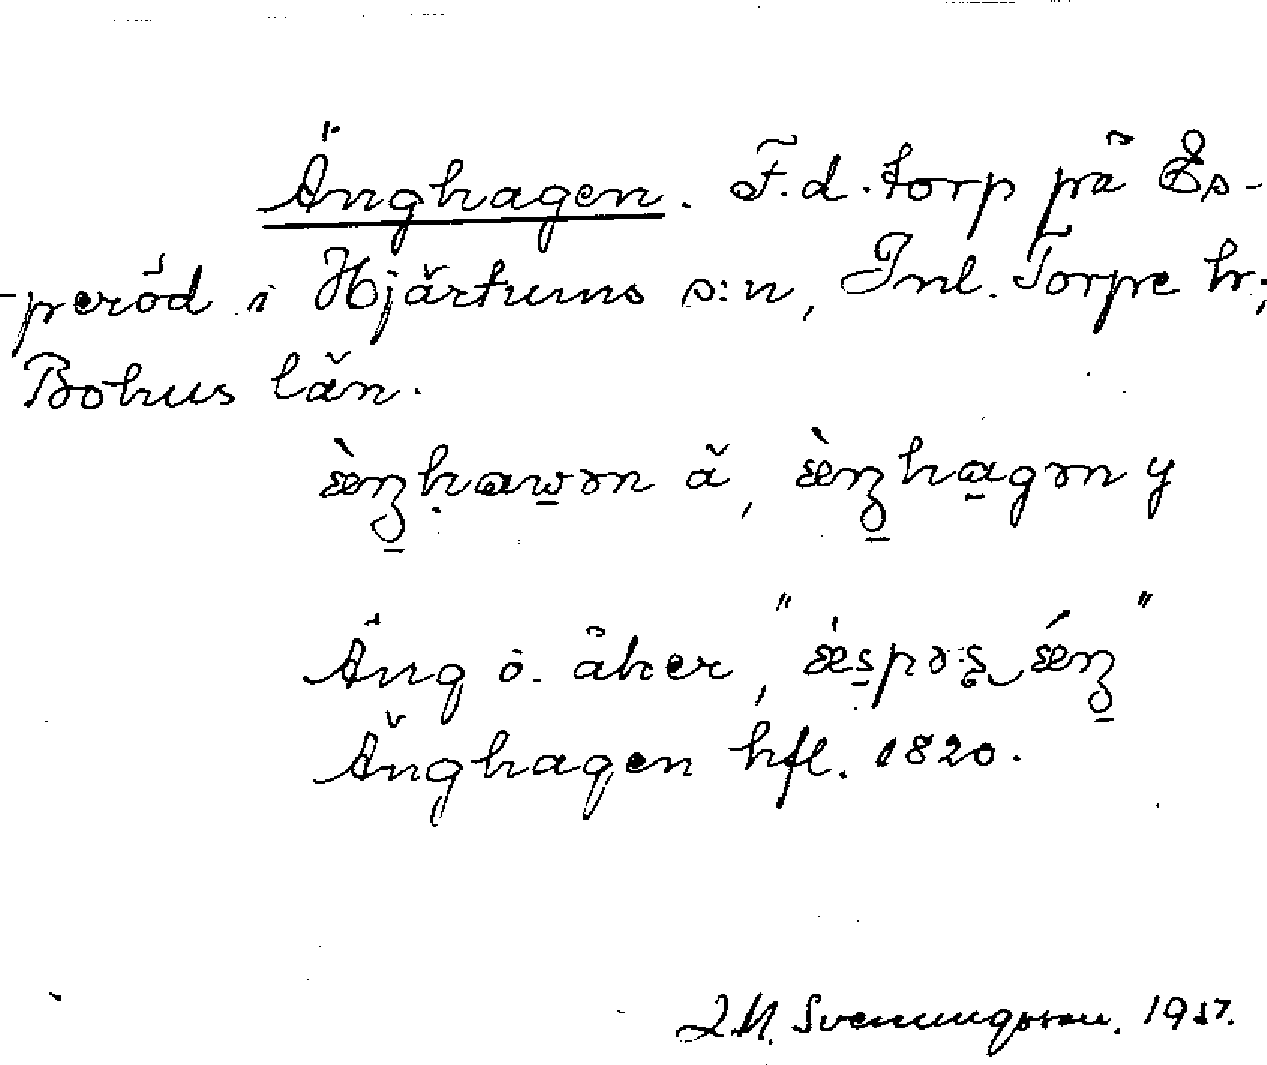 Änghagen. F.d. torp på Es-
peröd i Hjärtums s:n, Inl. Torpe hr;
Bohus län.
ä̀ŋhawən ä, ä̀ŋhagən y
Äng o. åker, "ä́spəs ä́ŋ"
Änghagen hfl. 1820.
Svenungsson. 1957.